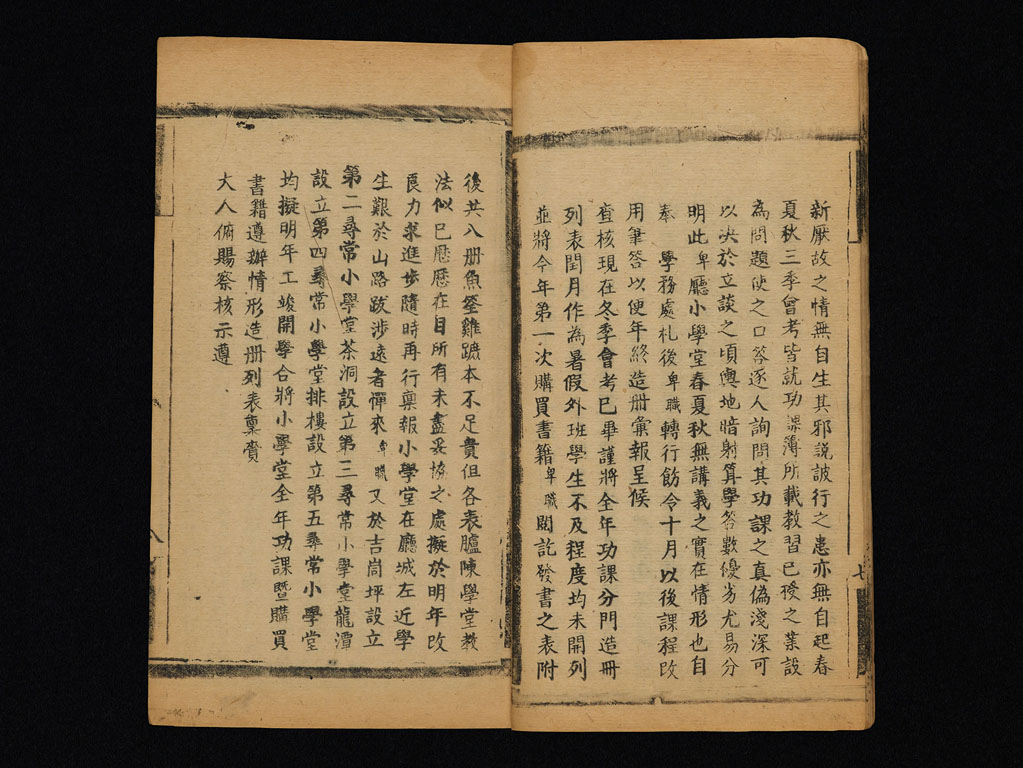 新厭故之情無自生其邪說詖行之患亦無自起春
夏秋三季會考皆就功課簿所載教習已授之業設
為問題使之口答逐人詢問其功課之真偽淺深可
以决於立談之頃輿地暗射算學答數優劣尤易分
明此卑廳小學堂春夏秋無講義之實在情形也自
奉 學務處札後卑職轉行飭令十月以後課程改
用筆答以便年終造册彙報呈候
查核現在冬季會考已畢謹將全年功課分門造冊
列表閏月作為暑假外班學生不及程度均未開列
並將今年第一次購買書籍卑職閱訖發書之表附
七
後共八册魚筌雞蹠本不足貴但各表臚陳學堂教
法似已歷歷在目所有未盡妥協之處擬於明年改
良力求進步隨時再行稟報小學堂在廳城左近學
生艱於山路跋涉遠者憚來卑職又於吉峝坪設立
第二尋常小學堂茶洞設立第三尋常小學堂龍潭
設立第四尋常小學堂排樓設立第五尋常小學堂
均擬明年工竣開學合將小學堂全年功課暨購買
書籍遵辦情形造册列表稟賫
大人俯賜察核示遵
八